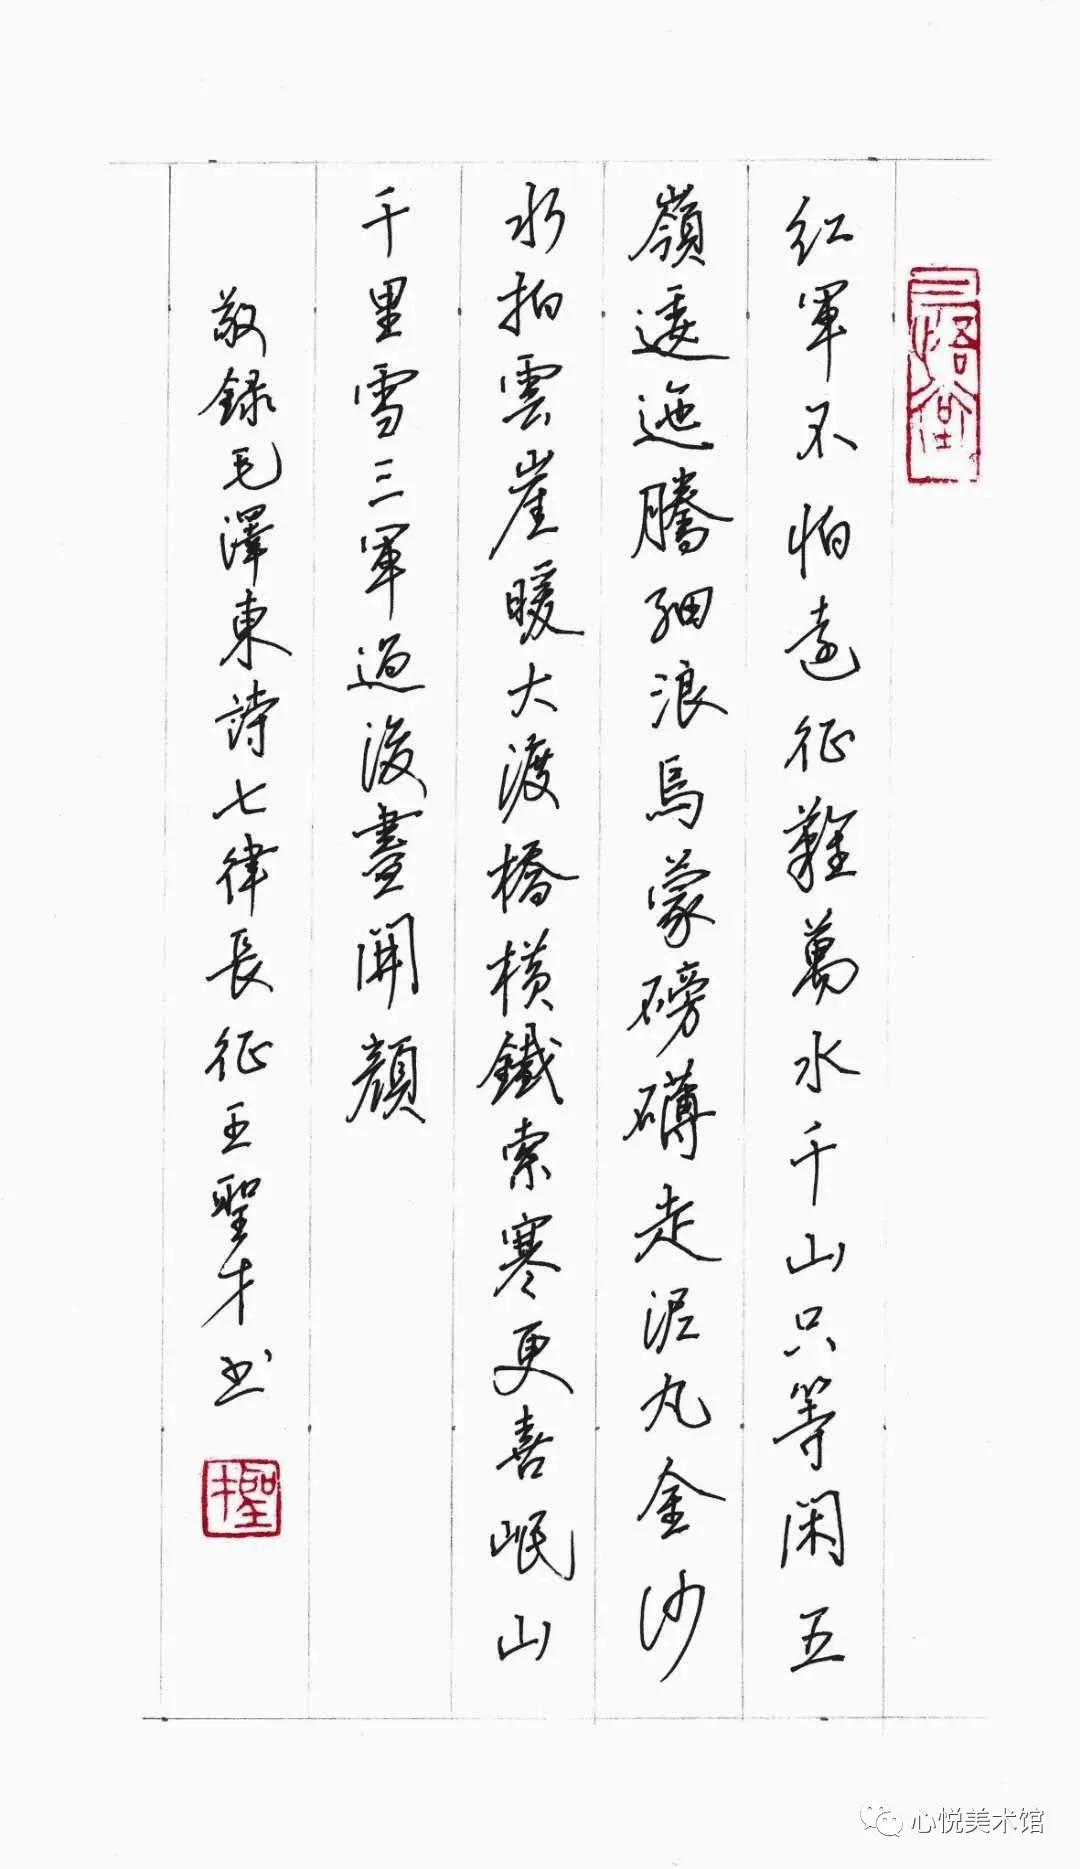 三悟堂
红軍不怕遠征難萬水千山只等闲五
嶺逶迤騰细浪烏蒙磅礴走泥丸金沙
水拍雲崖暖大渡橋横鐵索寒更喜岷山
千里雪三軍過後盡開顔
敬録毛澤東詩七律長征王聖才书
聖才
心悦美术馆